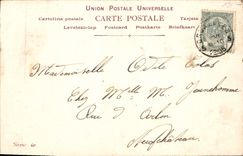 UNION POSTALE UNIVERSELLE
Cartolina postale CARTE POSTALE Tarjeta
Levelezö-Lap Postcard Postkarte Briefkaart
Mademoiselle Odile
Chez Mlle M. Jeunehomme
Rue d'Arlon
Neufchâteau
Serie 40